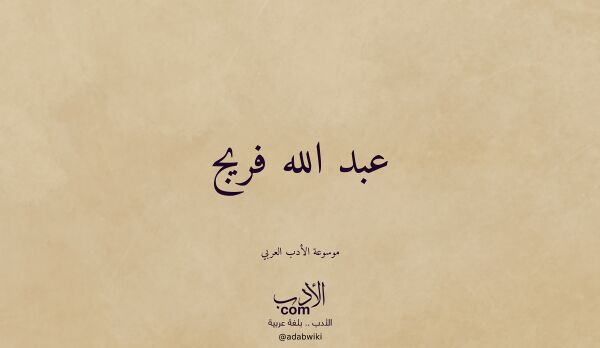 عبد الله فريج
موسوعة الأدب العربي
الأدب
com
الأدب .. بلغة عربية
@adabwiki